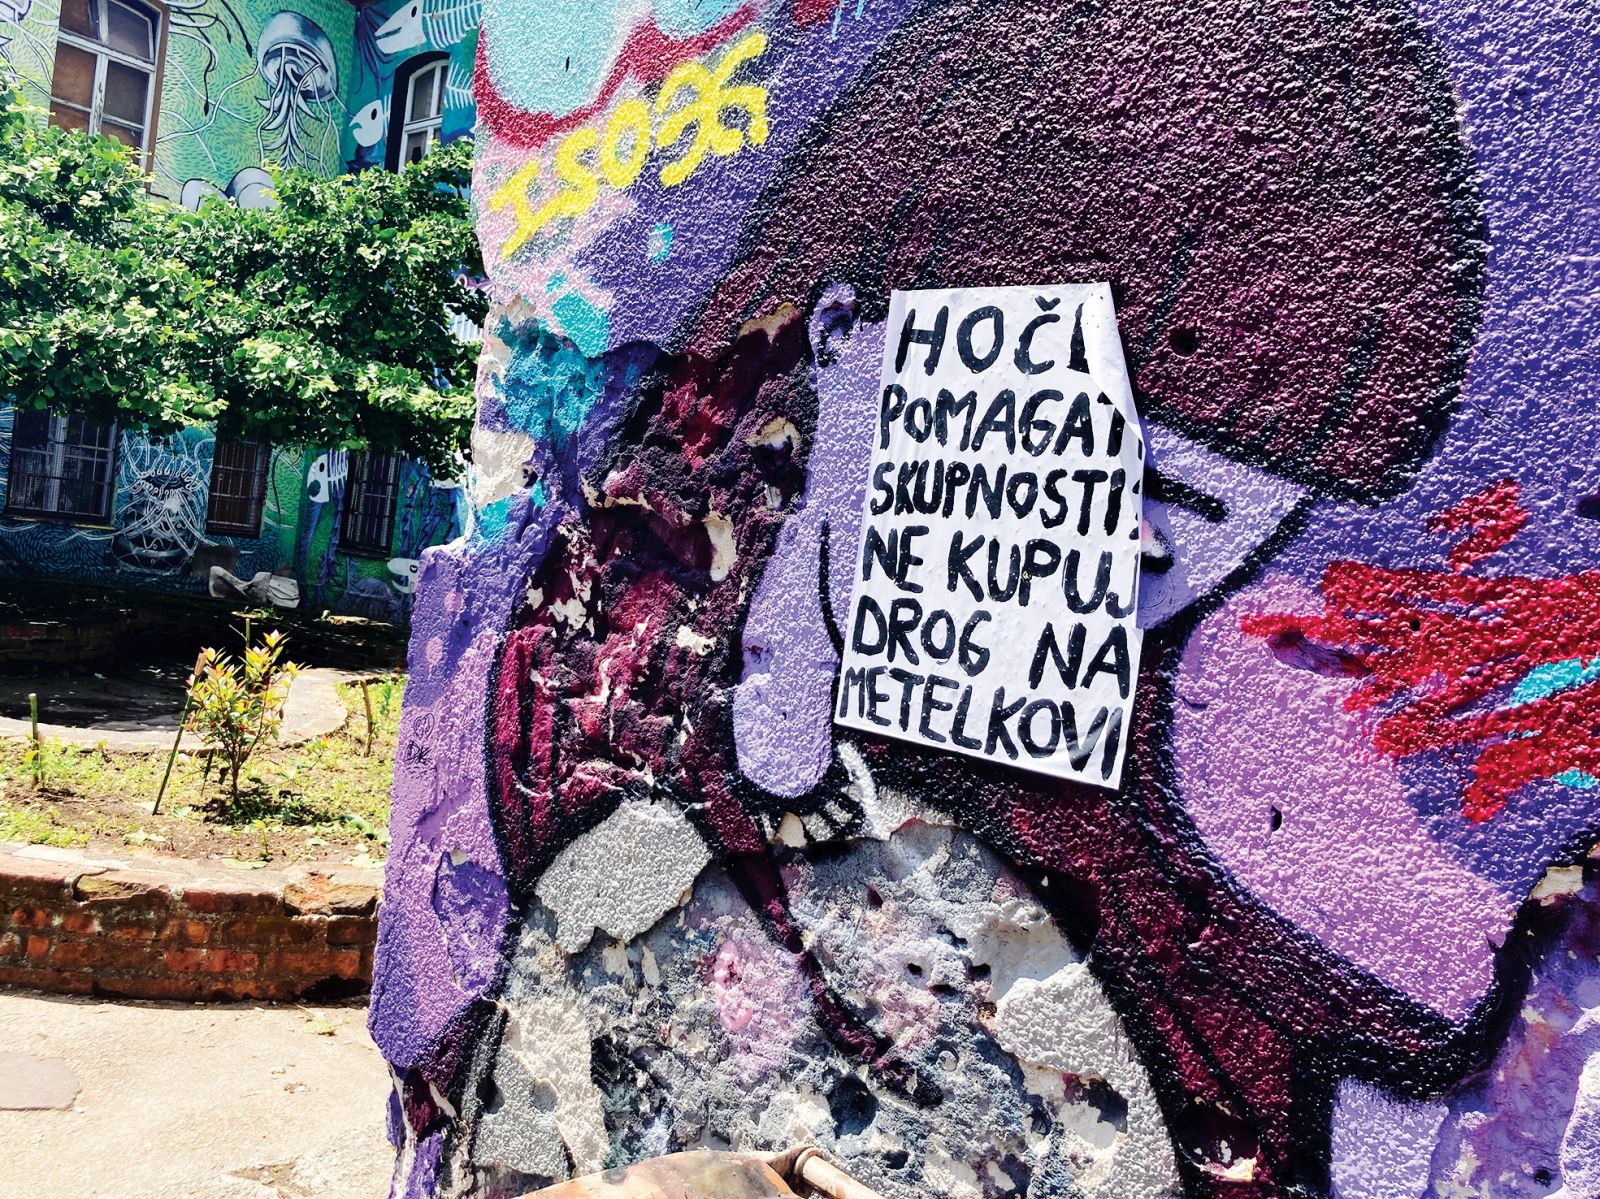 HOČ
POMAGAT
SKUPNOSTI
NE KUPUJ
DROG NA
METELKOVI